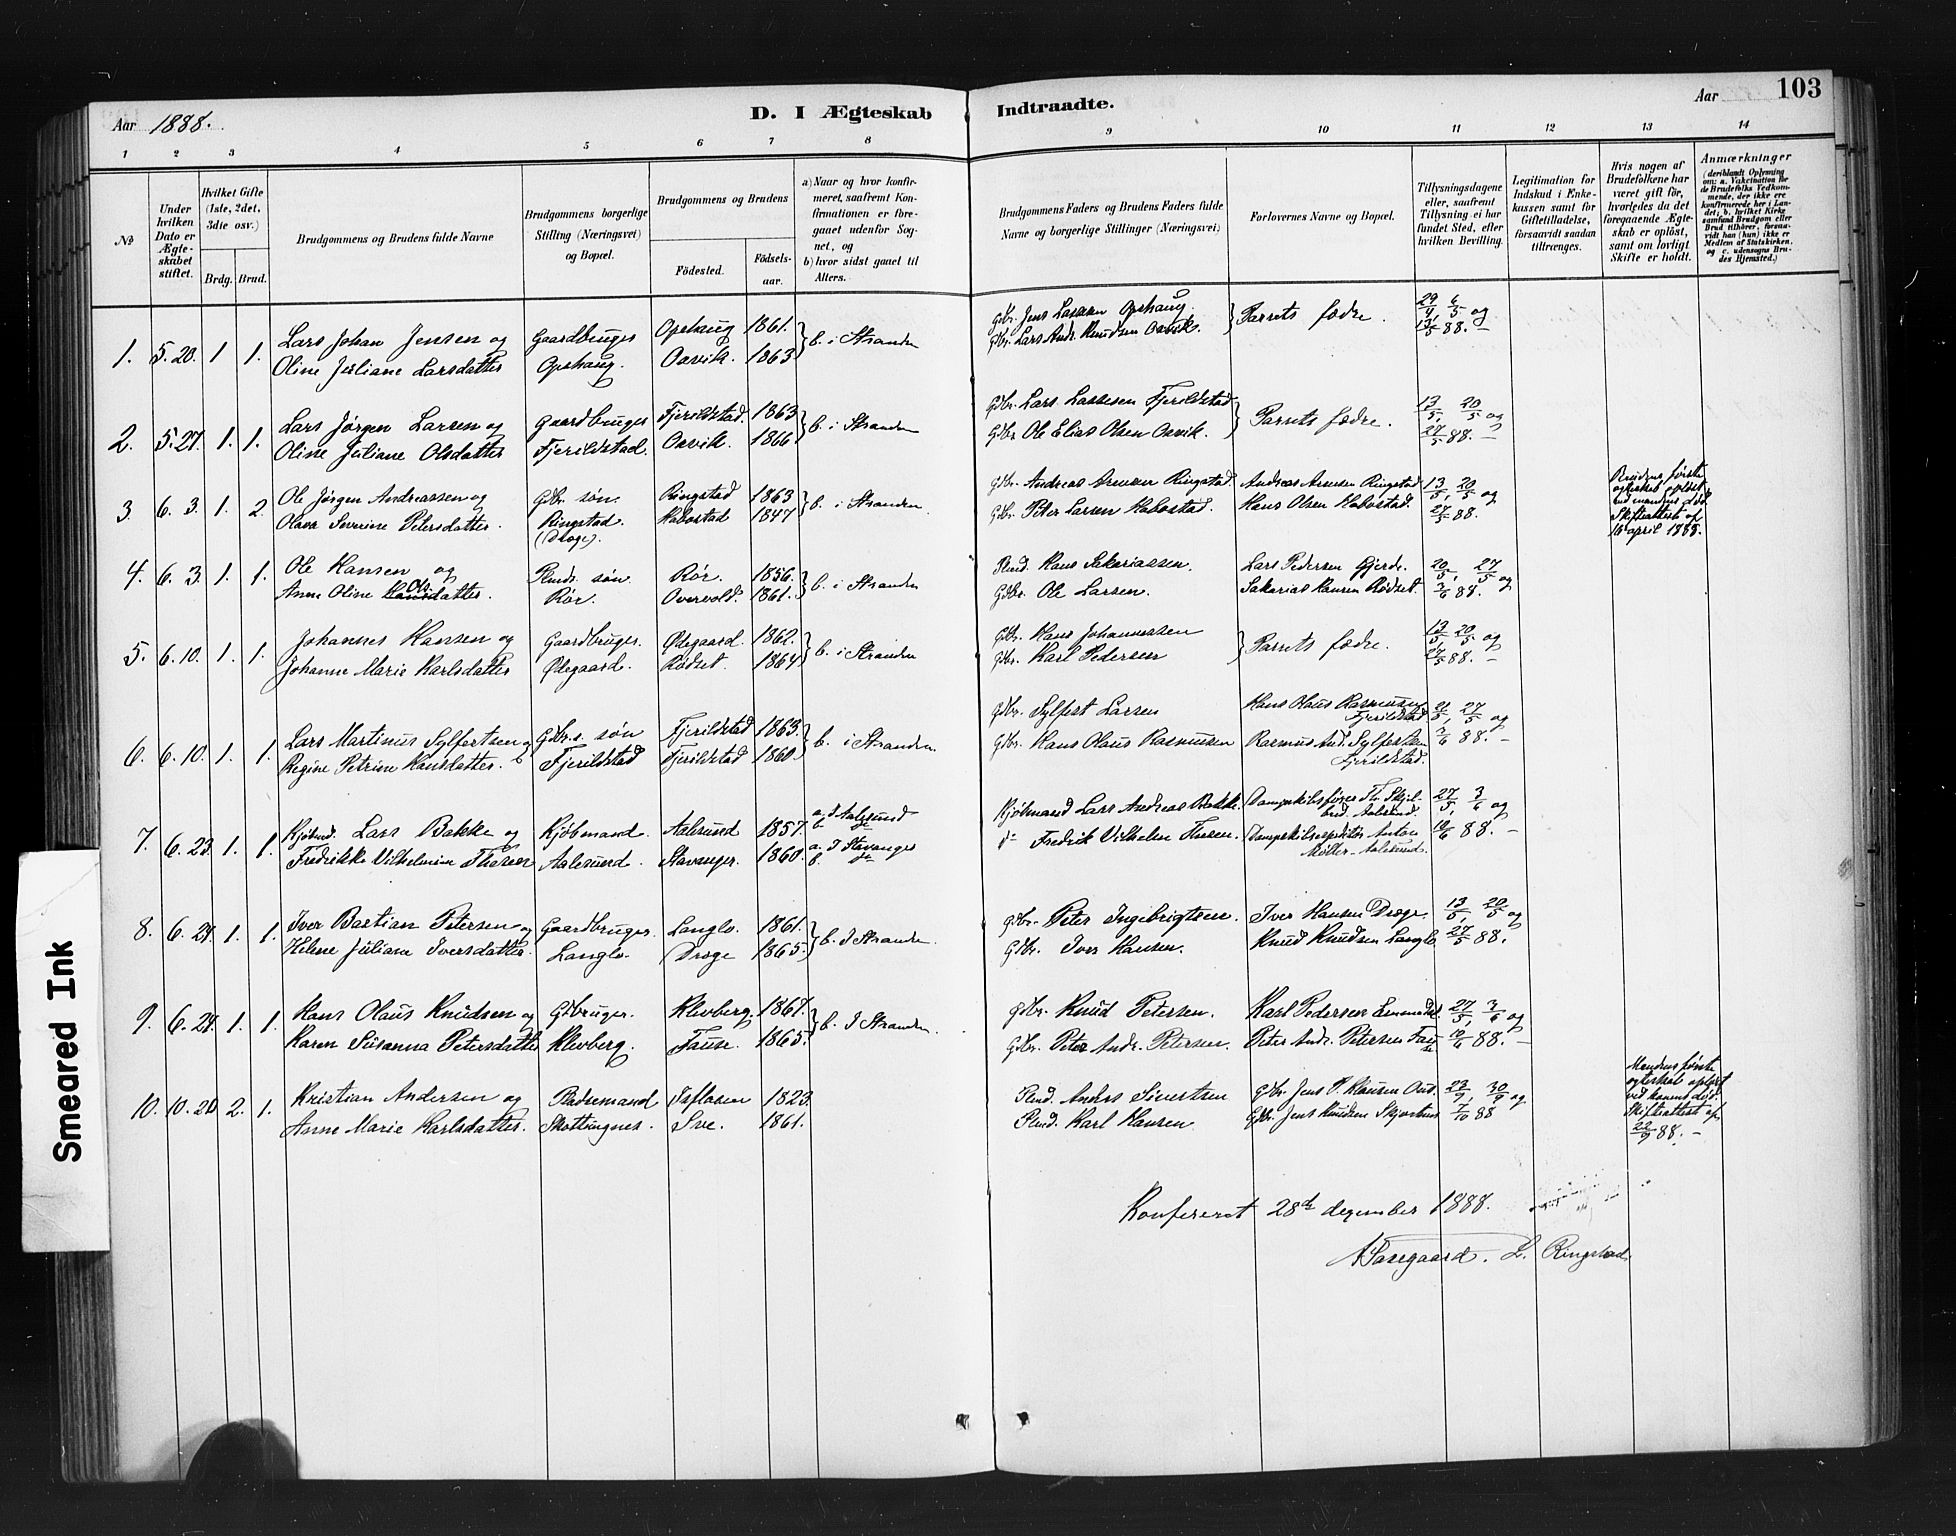 Aar 1888.
D. I Ægteskab Indtraadte.
Aar
103
1 2 3 4 5 6 7 8 9 10 11 12 13 14
№
Under hvilken Dato er Ægteskabet stiftet.
Hvilket Gifte (1ste, 2det, 3die osv.)
Brdg. Brud.
Brudgommens og Brudens fulde Navne
Brudgommens borgerlige Stilling (Næringsvei) og Bopæl.
Brudgommens og Brudens
Födested.
Födselsaar.
a) Naar og hvor konfirmeret, saafremt Konfirmationen er foregaaet udenfor Sognet, og
b) hvor sidst gaaet til Alters.
Brudgommens Faders og Brudens Faders fulde Navne og borgerlige Stillinger (Næringsvei)
Forlovernes Navne og Bopæl.
Tillysningsdagene eller, saafremt Tillysning ei har fundet Sted, efter hvilken Bevilling.
Legitimation for Indskud i Enkekassen samt for Giftetilladelse, forsaavidt saadan tiltrænges.
Hvis nogen af Brudefolkene har været gift för, hvorledes da det foregaaende Ægteskab er oplöst, samt om lovligt Skifte er holdt.
Anmærkninger
(deriblandt Oplysning om: a. Vakcination for de Brudefolks Vedkommende, der ikke ere konfirmerede her i Landet; b. hvilket Kirkesamfund Brudgom eller Brud tilhörer, forsaavidt han (hun) ikke er Medlem af Statskirken, og c. udensogns Brudes Hjemsted.)
1. 5.20. 1 1. Lars Johan Jensen og Gaardbruger Opshaug 1861. b. i Stranden Gdbr. Jens Larsen Opshaug Parrets fædre. 29/4 6/5 og
Oline Juliane Larsdatter Opshaug. Oavik. 1863 Gdbr. Lars Andr. Knudsen Oavik. 13/5 88. –
2. 5.27. 1. 1. Lars Jørgen Larsen og Gaardbruger Fjerildstad. 1863 b. i Stranden Gdbr. Lars Lassesen Fjerildstad Parrets fædre. 13/5, 20/5 og
Oline Juliane Olsdatter Fjerildstad. Oavik. 1866 Gdbr Ole Elias Olsen Oavik. 27/5 88. –
3. 6.3. 1. 2. Ole Jørgen Andreassen og Gdbr. søn. Ringstad 1863 b. i Stranden. Gdbr. Andreas Arnesen Ringstad Andreas Arnesen Ringstad 13/5, 20/5 og Brudens første
Olava Severine Petersdatter. Ringstad. Habostad 1847 Gdbr. Peter Larsen Habostad. Hans Olsen Habostad. 27/5 88. ægteskab opløst
(Drage). ved mandens død
Skifteattest af
16 april 1888.
4. 6.3. 1. 1. Ole Hansen og Plads. søn. Rör. 1856. b. i Stranden Plmd. Hans Sakariassen. Lars Pedersen Gjerde. 20/5, 27/5 og
Anne Oline Olsdatter. Rör. Overvold. 1861. Gdbr. Ole Larsen. Sakarias Hansen Rødset. 3/6 88.
5. 6.10. 1. 1. Johannes Hansen og Gaardbruger. Ødegaard. 1862. b. i Stranden Gdbr. Hans Johannessen Parrets fædre. 13/5, 20/5 og
Johanne Marie Karlsdatter Ødegaard. Rödset. 1864 Gdbr. Karl Pedersen 27/5 88. –
6. 6.10. 1. 1. Lars Martinus Sylfestsen og Gdbr.s. søn Fjerildstad 1863. b. i Stranden. Gdbr. Sylfest Larsen Hans Olaus Rasmusen Fjerildstad 27/5 og
Regine Petrine Hansdatter. Fjerildstad Fjerildstad 1860 Gdbr. Hans Olaus Rasmusen Rasmus And. Sylfestsen Fjerildstad. 3/6 88. –
7. 6.23. 1. 1. Kjøbmd. Lars Bakke og Kjöbmand. Aalesund 1857. a. I Aalesund b. Kjöbmand Lars Andreas Bakke. Dampskibsfører Th. Aalesund. 27/5, 3/6 og
Fredrikke Vilhelmine Thesen Aalesund. Stavanger. 1860. a. I Stavanger b. do d– Fredrik Vilhelm Thesen. Dampskibsexpeditör Anton Möller – Aalesund. 10/6 88. –
8. 6.24. 1. 1. Iver Bastian Petersen og Gaardbruger. Langlo. 1861. b. I Stranden. Gdbr. Peter Ingebrigtsen. Iver Hansen Drage. 13/5, 20/5 og
Helene Juliane Iversdatter. Langlo. Drage 1865. Gdbr. Iver Hansen. Knud Knudsen Langlo 27/5 88.
9. 6.24. 1. 1. Hans Olaus Knudsen og Gdbruger. Klevberg. 1867. b. I Stranden. Gdbr. Knud Petersen. Karl Pedersen 27/5, 3/6 og
Karen Susanna Petersdatter Klevberg. Fause. 1865. Gdbr. Peter Andr. Petersen. Peter Andr. Petersen Fause 10/6 88. –
10. 10.21 2. 1. Kristian Andersen og Pladsemand 1823. Plmd. Anders Sivertsen Gdbr. Jens P. Klausen 23/9, 30/9 og Mandens første
Anne Marie Karlsdatter. Skottingnes. Sve. 1861. Plmd. Karl Hansen. Gdbr. Jens Knudsen 7/10 88 ægteskab opløst
ved konens død.
Skifteattest af
22/9 88. –
Konfereret 28de dezember 1888.
Aasegaard. L. Ringstad
Smeared Ink